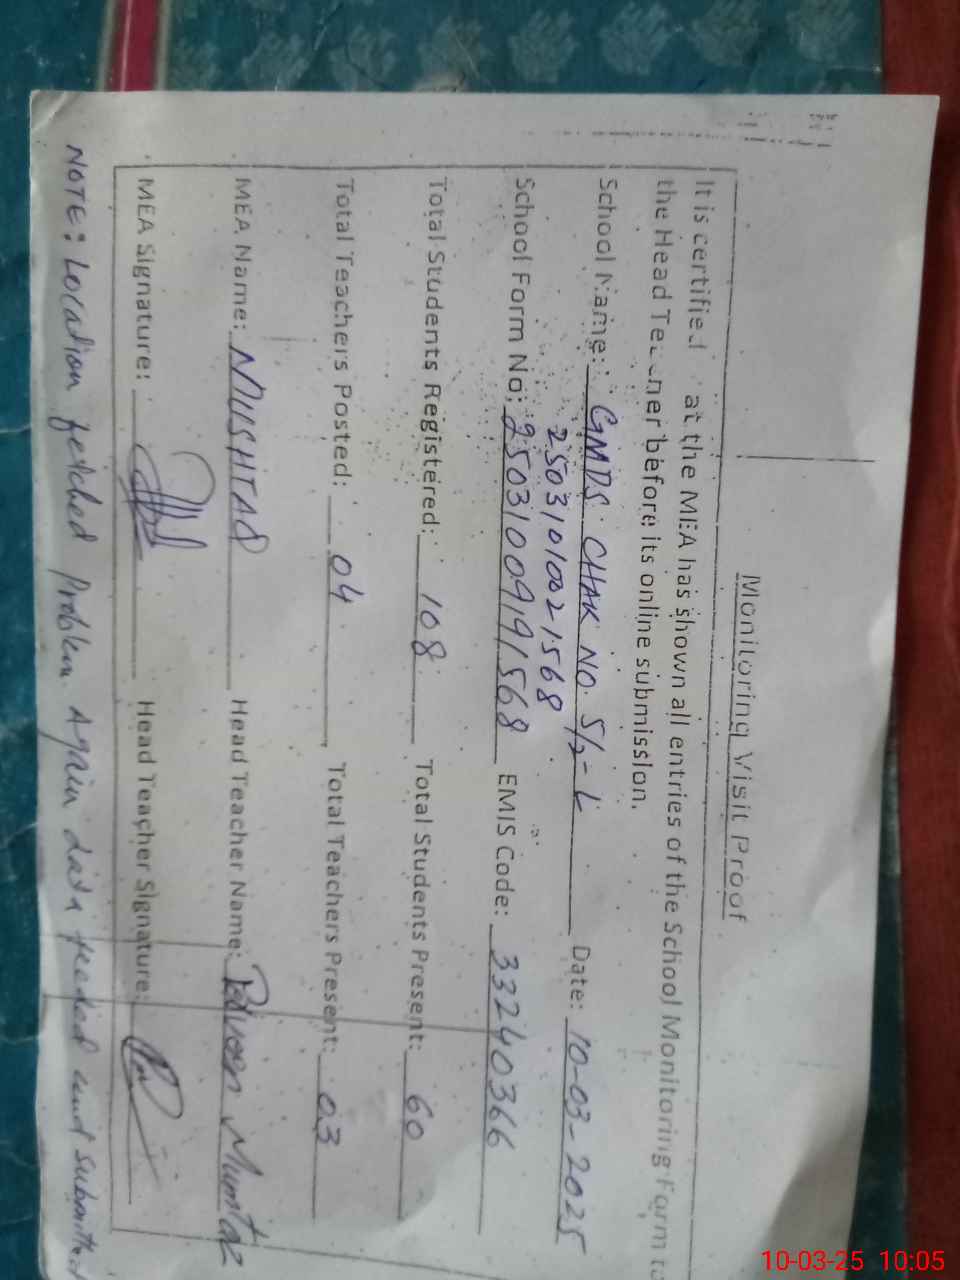 Monitoring Visit Proof
It is certified at the MEA has shown all entries of the School Monitoring Form to
the Head Teacher before its online submission.
School Name: GMDS CHAK NO. 5/2-L Date: 10-03-2025
25031010021568
School Form No: 25031009191568 EMIS Code: 33240366
Total Students Registered: 108 Total Students Present: 60
Total Teachers Posted: 04 Total Teachers Present: 03
MEA Name: MUSHTAQ Head Teacher Name: Mumtaz
MEA Signature: Head Teacher Signature:
NOTE: Location fetched Problem. Again data feeded and submitted
10-03-25 10:05